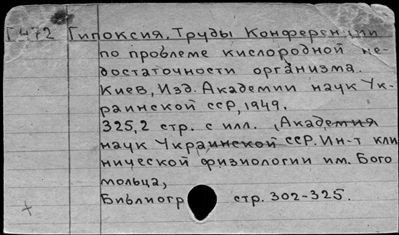 Г 472 Гипоксия. Труды Конференции
по проблеме кислородной не-
достаточности организма.
Киев, Изд. Академии наук Ук-
раинской ССР, 1949.
325,2 стр. с илл. (Академия
наук Украинской ССР. Ин-т кли
нической физиологии им. Бого
мольца,
Библиогр стр. 302-325.